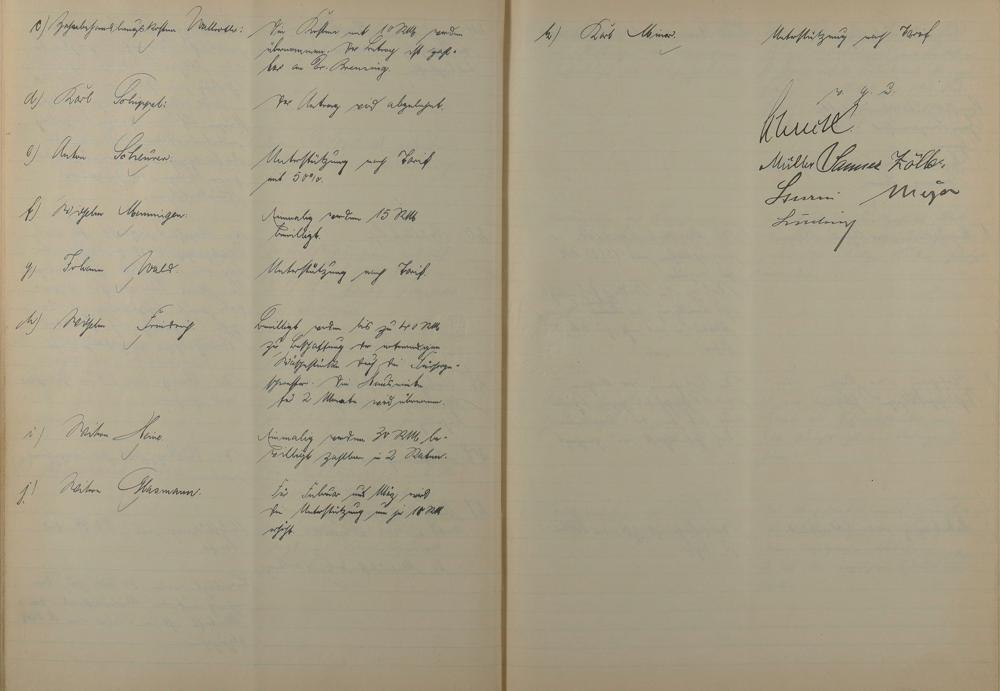 c) Zahnbehandlungskosten
Die Kosten mit 10 RM werden
übernommen. Der Betrag ist zahl-
bar an Dr. Brenning.
d) Karl Schüppel:
Der Antrag wird abgelehnt.
e) Anton Scheurer:
Unterstützung nach Tarif
mit 50%.
f) Wilhelm Memmingen:
Einmalig werden 15 RM
bewilligt.
g) Johann Wald.
Unterstützung nach Tarif
h) Wilhelm Friedrich
Bewilligt werden bis zu 40 RM
zur Beschaffung der notwendigen
Wäschestücke durch die Fürsorge-
schwester. Die Hausmiete
für 2 Monate wird übernom.
i) Witwe Heine.
Einmalig werden 30 RM be-
willigt zahlbar in 2 Raten.
j) Witwe Glasmann.
Für Februar und März wird
die Unterstützung um je 10 RM
erhöht
k) Karl Meier.
Unterstützung nach Tarif
v. g. u.
Müller
Meyer
Ludwig